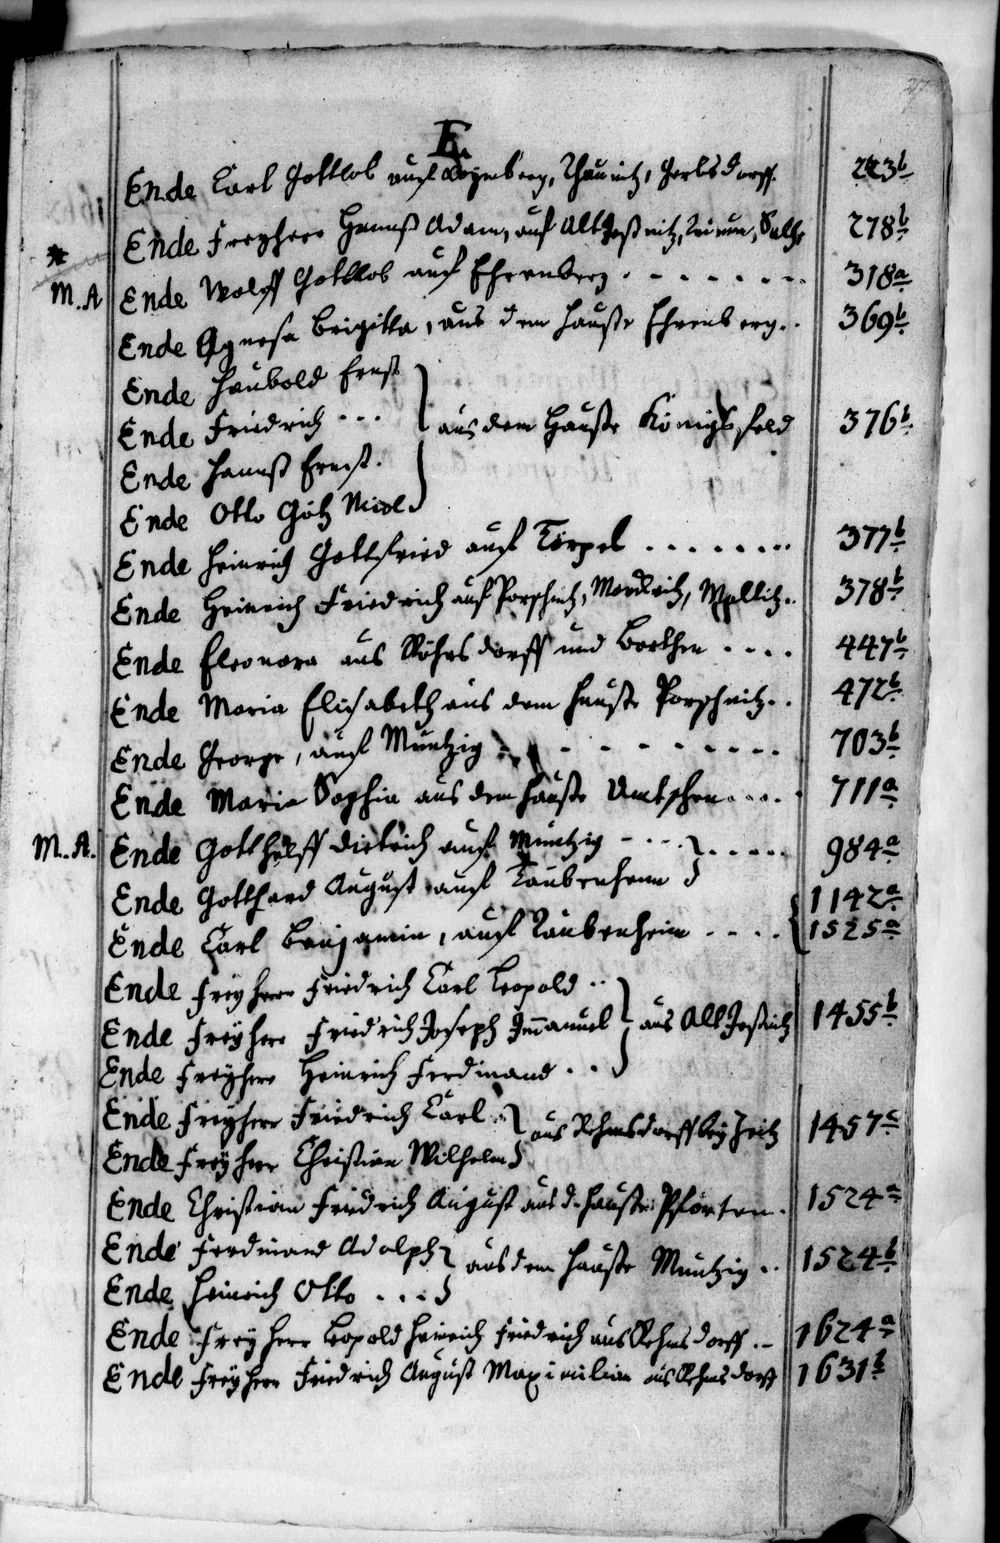 E.
Ende Carl Gottlob auf Thaunitz, Gerlsdorff. 223b
Ende Freyherr Hannß Adam, auf Alt Jeßnitz, 278b
*
M.A Ende Wolff Gottlob auf Ehrenberg . - - - - - - - 318a
Ende Agnesa Brigitta, aus dem Hauße Ehrenberg.. 369b
Ende Haubold Ernst
Ende Friedrich - - - } aus dem Hauße Königsfeld 376b
Ende Hannß Ernst.
Ende Otto Götz Nicol
Ende Heinrich Gottfried auf Törpel . . . . . . . . 377b
Ende Heinrich Friedrich auf Porschnitz, Wollitz.. 378b
Ende Eleonora aus Röhrsdorff und Borthen . . . . 447b
Ende Maria Elisabeth aus dem Hauße Porschnitz. . 472b
Ende George, auf Muntzig - - - - - - - - 703b
Ende Maria Sophia aus dem Hauße . . . . 711a
M.A. Ende Gotthelff Dietrich auf Müntzig - . . . } . . . . . 984a
Ende Gotthard August auf Taubenheim } 1142a
Ende Carl Benjamin, auf Taubenheim . . . . { 1525a
Ende Freyherr Friedrich Carl Leopold ..
Ende Freyherr Friedrich Joseph Im̄anuel } aus Alt Jeßnitz 1455b
Ende Freyherr Heinrich Ferdinand . . .
Ende Freyherr Friedrich Carl . } aus Rehmsdorff bey Zeitz 1457a
Ende Freyherr Christian Wilhelm }
Ende Christian Friedrich August aus d. Hauße Pförten. 1524a
Ende Ferdinand Adolph } aus dem Hauße Muntzig .. 1524b
Ende Heinrich Otto . . . . }
Ende Freyherr Leopold Heinrich Friedrich aus Rehmsdorff .. 1624a
Ende Freyherr Friedrich August Maximilian aus Rehmsdorff 1631b